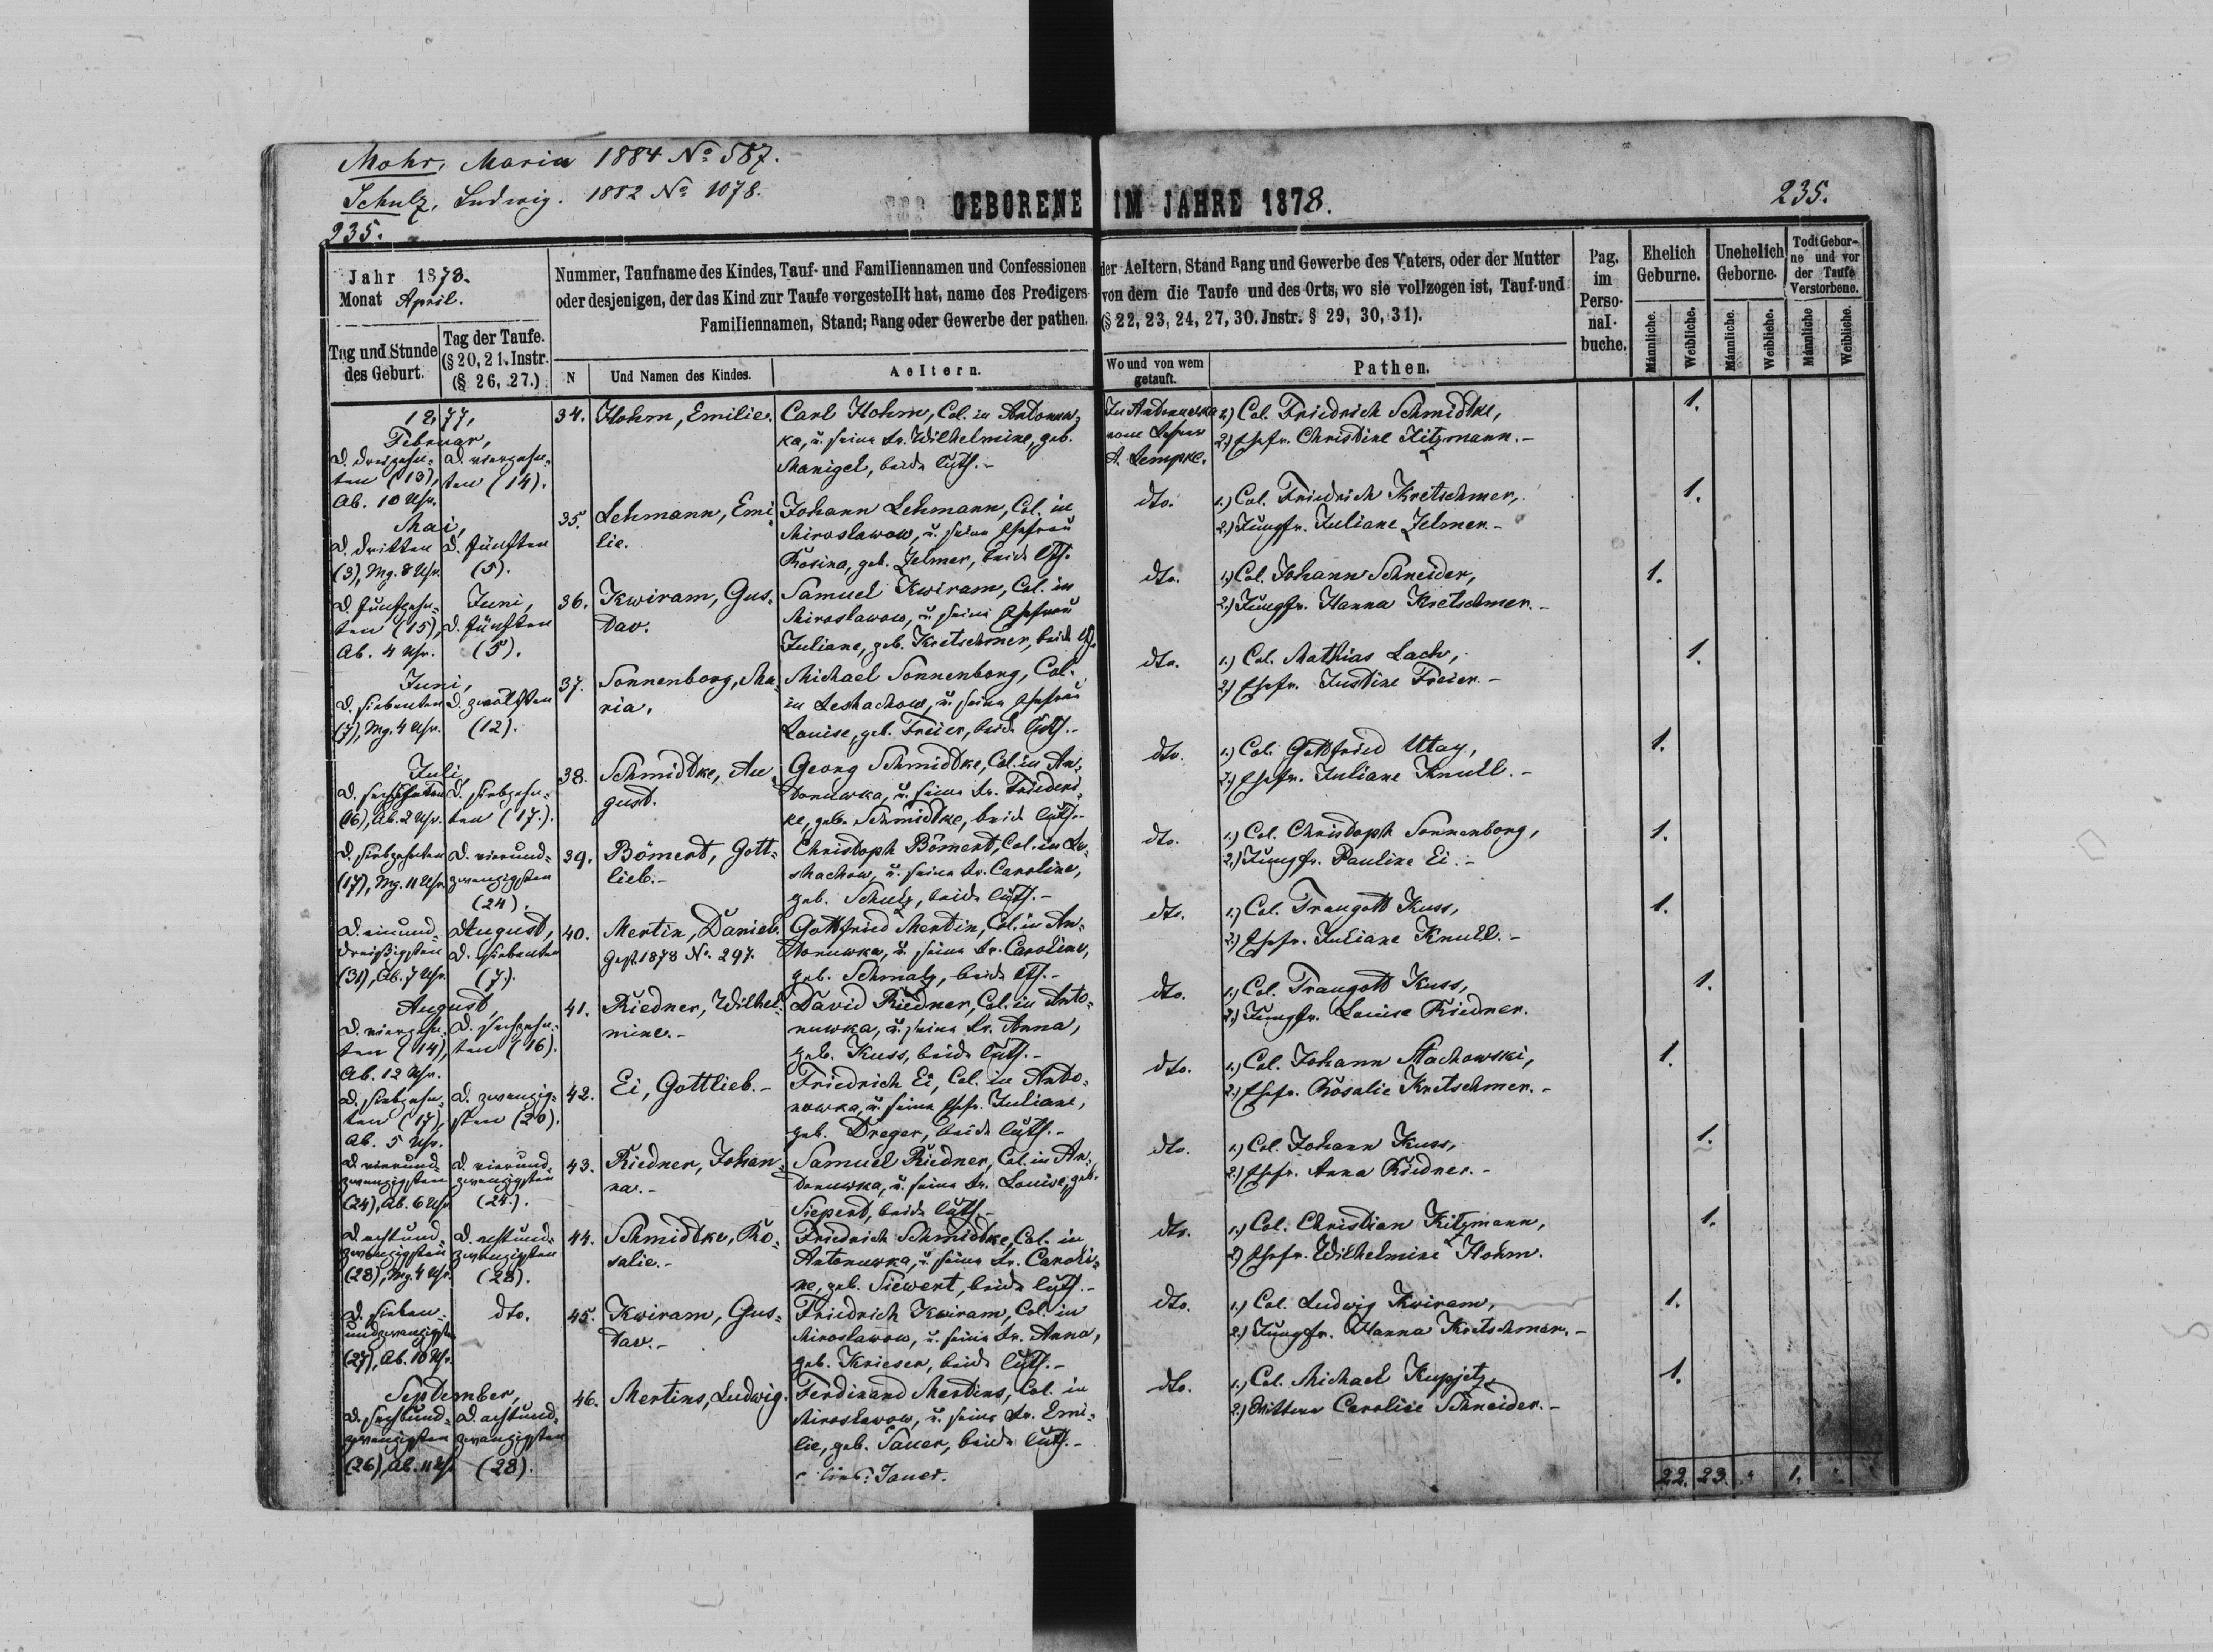 Mohr, Maria 1884 No 587.
Schulz, Ludwig. 1882 No 1078.
235.
GEBORENE IM JAHRE 1878.
235.
Jahr 1878.
Monat April.
Tag und Stunde des Geburt.
Tag der Taufe. (§ 20, 21. Instr. (§ 26, 27.)
Nummer, Taufname des Kindes, Tauf- und Familiennamen und Confessionen der Aeltern, Stand Rang und Gewerbe des Vaters, oder der Mutter
oder desjenigen, der das Kind zur Taufe vorgestellt hat, name des Predigers von dem die Taufe und des Orts, wo sie vollzogen ist, Tauf-und
Familiennamen, Stand; Rang oder Gewerbe der pathen. (§ 22, 23, 24, 27, 30. Instr. § 29, 30, 31).
N
Und Namen des Kindes.
Aeltern.
Wo und von wem getauft.
Pathen.
Pag. im Perso- nal- buche.
Ehelich Geburne.
Unehelich Geborne.
Todt Gebor- ne und vor der Taufe Verstorbene.
Männliche.
Weibliche.
Männliche.
Weibliche.
Männliche
Weibliche.
1877,
Februar,
d. dreizehn-
ten (13),
Ab. 10 Uhr.
d. vierzehn-
ten (14).
34.
Hohm, Emilie.
Carl Hohm, Col. in Antonuw-
ka, u. seine Fr. Wilhelmine, geb.
Manigel, beide luth.-
In Antonuwka
vom Lehrer
A. Lempke.
1.) Col. Friedrich Schmidtke,
2.) Ehefr. Christine Kitzmann.-
1.
Mai,
d. dritten
(3), Mg. 8 Uhr.
d. fünften
(5).
35.
Lehmann, Emi-
lie.
Johann Lehmann, Col. in
Miroslawow, u. seine Ehefrau
Rosina, geb. Zelmer, beide lth.
dto.
1.) Col. Friedrich Kretschmer,
2.) Jungfr. Juliane Zelmer.-
1.
d. fünfzehn-
ten (15),
Ab. 4 Uhr.
Juni,
d. fünften
(5).
36.
Kwiram, Gus-
tav.
Samuel Kwiram, Col. in
Miroslawow, u. seine Ehefrau
Juliane, geb. Kretschmer, beide lth.
dto.
1.) Col. Johann Schneider,
2.) Jungfr. Hanna Kretschmer.-
1.
Juni,
d. siebenten
(7), Mg. 4 Uhr.
d. zwölften
(12).
37.
Sonnenborg, Ma-
ria.
Michael Sonnenborg, Col.
in Leshachow, u. seine Ehefrau
Louise, geb. Freier, beide luth.-
dto.
1.) Col. Mathias Lach,
2.) Ehefr. Justine Freier.-
1.
Juli,
d. sechzehnten
(16), Ab. 2 Uhr.
d. siebzehn-
ten (17.).
38.
Schmidtke, Au-
gust.
Georg Schmidtke, Col. in An-
tonuwka, u. seine Fr. Frideri-
ke, geb. Schmidtke, beide luth.-
dto.
1.) Col. Gottfried Utay,
2.) Ehefr. Juliane Knull.-
1.
d. siebzehnten
(17), Mg. 11 Uhr.
d. vierund-
zwanzigsten
(24).
39.
Böment, Gott-
lieb.-
Christoph Böment, Col. in Le-
shachow, u. seine Fr. Caroline,
geb. Schulz, beide luth.-
dto.
1.) Col. Christoph Sonnenborg,
2.) Jungfr. Pauline Ei.-
1.
d. einund-
dreißigsten
(31), Ab. 7 Uhr.
August,
d. siebenten
(7).
40.
Mertin, Daniel.
Gest. 1878 No. 297.
Gottfried Mertin, Col. in An-
tonuwka, u. seine Fr. Caroline,
geb. Schmalz, beide lth.-
dto.
1.) Col. Traugott Kuss,
2.) Ehefr. Juliane Knull.-
1.
August,
d. vierzehn-
ten (14),
Ab. 12 Uhr.
d. sechzehn-
ten (16).
41.
Riedner, Wilhel-
mine.-
David Riedner, Col. in Anto-
nuwka, u. seine Fr. Anna,
geb. Kuss, beide luth.-
dto.
1.) Col. Traugott Kuss,
2.) Jungfr. Louise Riedner.
1.
d. siebzehn-
ten (17),
Ab. 5 Uhr.
d. zwanzig-
sten (20).
42.
Ei, Gottlieb.-
Friedrich Ei, Col. in Anto-
nowka, u. seine Ehefr. Juliane,
geb. Dreger, beide luth.-
dto.
1.) Col. Johann Stachowski,
2.) Ehefr. Rosalie Kretschmer.-
1.
d. vierund-
zwanzigsten
(24), Ab. 6 Uhr.
d. vierund-
zwanzigsten
(24.).
43.
Riedner, Johan-
na.-
Samuel Riedner, Col. in An-
tonuwka, u. seine Fr. Louise, geb.
Siepert, beide luth.-
dto.
1.) Col. Johann Kuss,
2.) Ehefr. Anna Riedner.-
1.
d. achtund-
zwanzigsten
(28), Mg. 4 Uhr.
d. achtund-
zwanzigsten
(28).
44.
Schmidtke, Ro-
salie.-
Friedrich Schmidtke, Col. in
Antonuwka, u. seine Fr. Caroli-
ne, geb. Siewert, beide luth.-
dto.
1.) Col. Christian Kitzmann,
2.) Ehefr. Wilhelmine Hohm.
1.
d. sieben-
undzwanzigsten
(27), Ab. 10 Uhr.
dto.
45.
Kwiram, Gus-
tav.-
Friedrich Kwiram, Col. in
Miroslawow, u. seine Fr. Anna,
geb. Krieser, beide luth.-
dto.
1.) Col. Ludwig Kwiram,
2.) Jungfr. Hanna Kretschmer.-
1.
September,
d. sechsund-
zwanzigsten
(26), Ab. 11 Uhr.
d. achtund-
zwanzigsten
(28).
46.
Mertins, Ludwig.
Ferdinand Mertins, Col. in
Miroslawow, u. seine Fr. Emi-
lie, geb. Sauer, beide luth.-
Jauer.
dto.
1.) Col. Michael Kupjetz,
2.) Wittwe Caroline Schneider.-
1.
22. 23. " 1. "